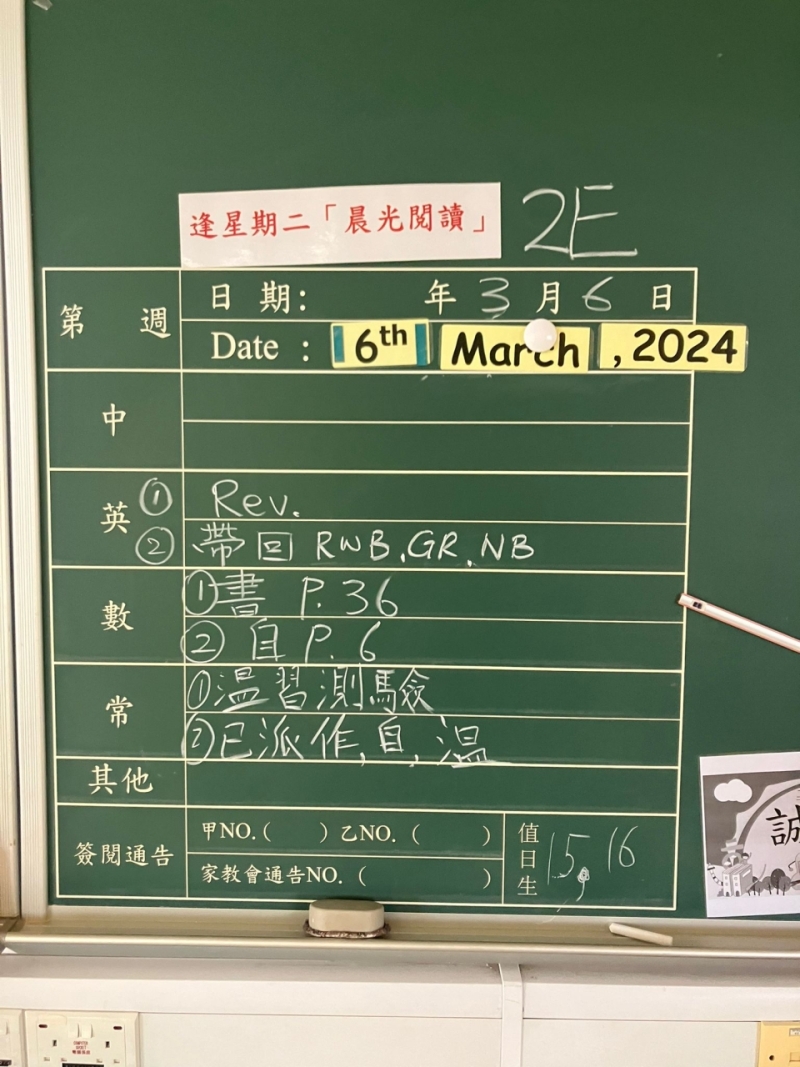 逢星期二「晨光閱讀」 2E
第 週
日 期: 年 3 月 6 日
Date : 6th March , 2024
中
英
① Rev.
② 帶回 RWB, GR, NB
數
① 書 P. 36
② 自 P. 6
常
① 温習測驗
② 已派作, 自, 温
其他
簽閱通告
甲NO.( ) 乙NO. ( )
家教會通告NO. ( )
值日生 15, 16
誠